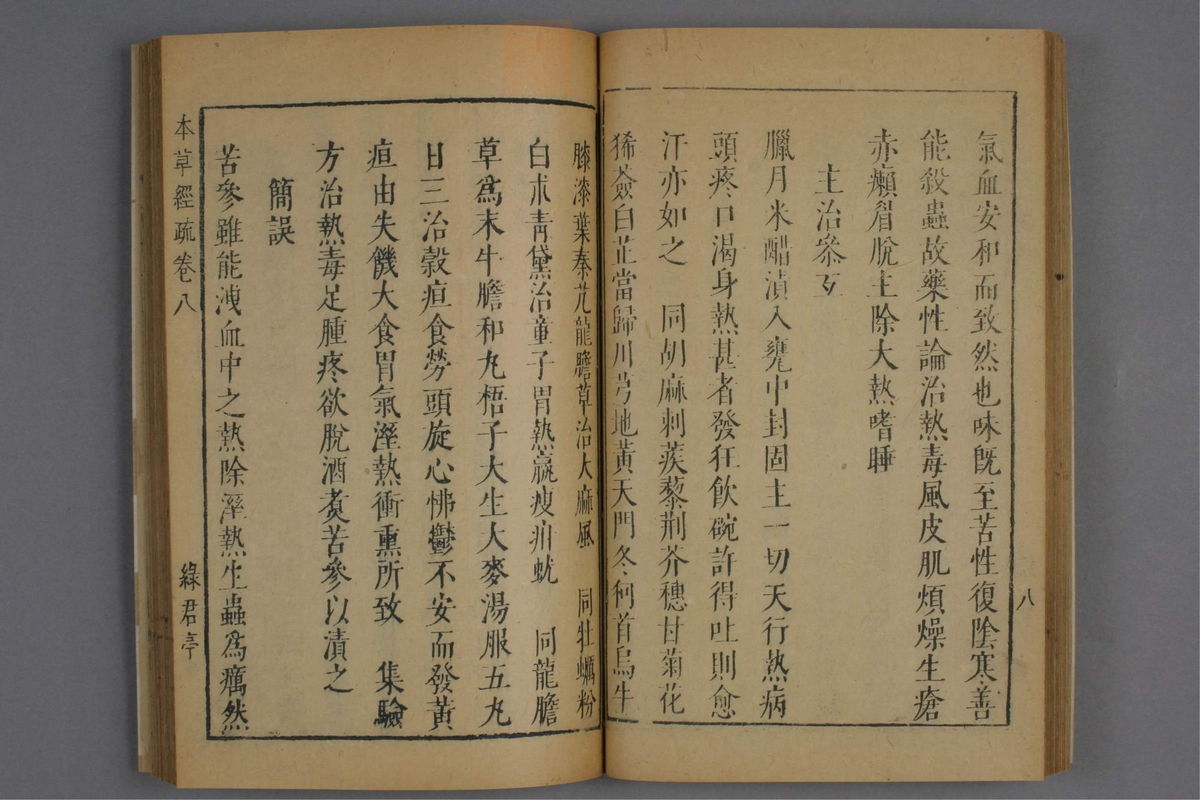 氣血安和而致然也味旣至苦性復陰寒善
能殺蟲故藥性論治熱毒風皮肌煩燥生瘡
赤癩眉脫主除大熱嗜睡
主治參互
臘月米醋漬入甕中封固主一切天行熱病
頭疼口渴身熱甚者發狂飲碗許得吐則愈
汗亦如之　同胡麻刺蒺藜荆芥穗甘菊花
豨薟白芷當歸川芎地黃天門冬何首烏牛
八
膝漆葉秦艽龍膽草治大麻風　同牡蠣粉
白朮青黛治童子胃熱羸瘦疳蚘　同龍膽
草爲末牛膽和丸梧子大生大麥湯服五丸
日三治穀疸食勞頭旋心怫鬱不安而發黃
疸由失饑大食胃氣溼熱衝熏所致　集驗
方治熱毒足腫疼欲脫酒煑苦參以漬之
簡誤
苦參雖能洩血中之熱除溼熱生蟲爲癘然
本草經疏卷八　綠君亭